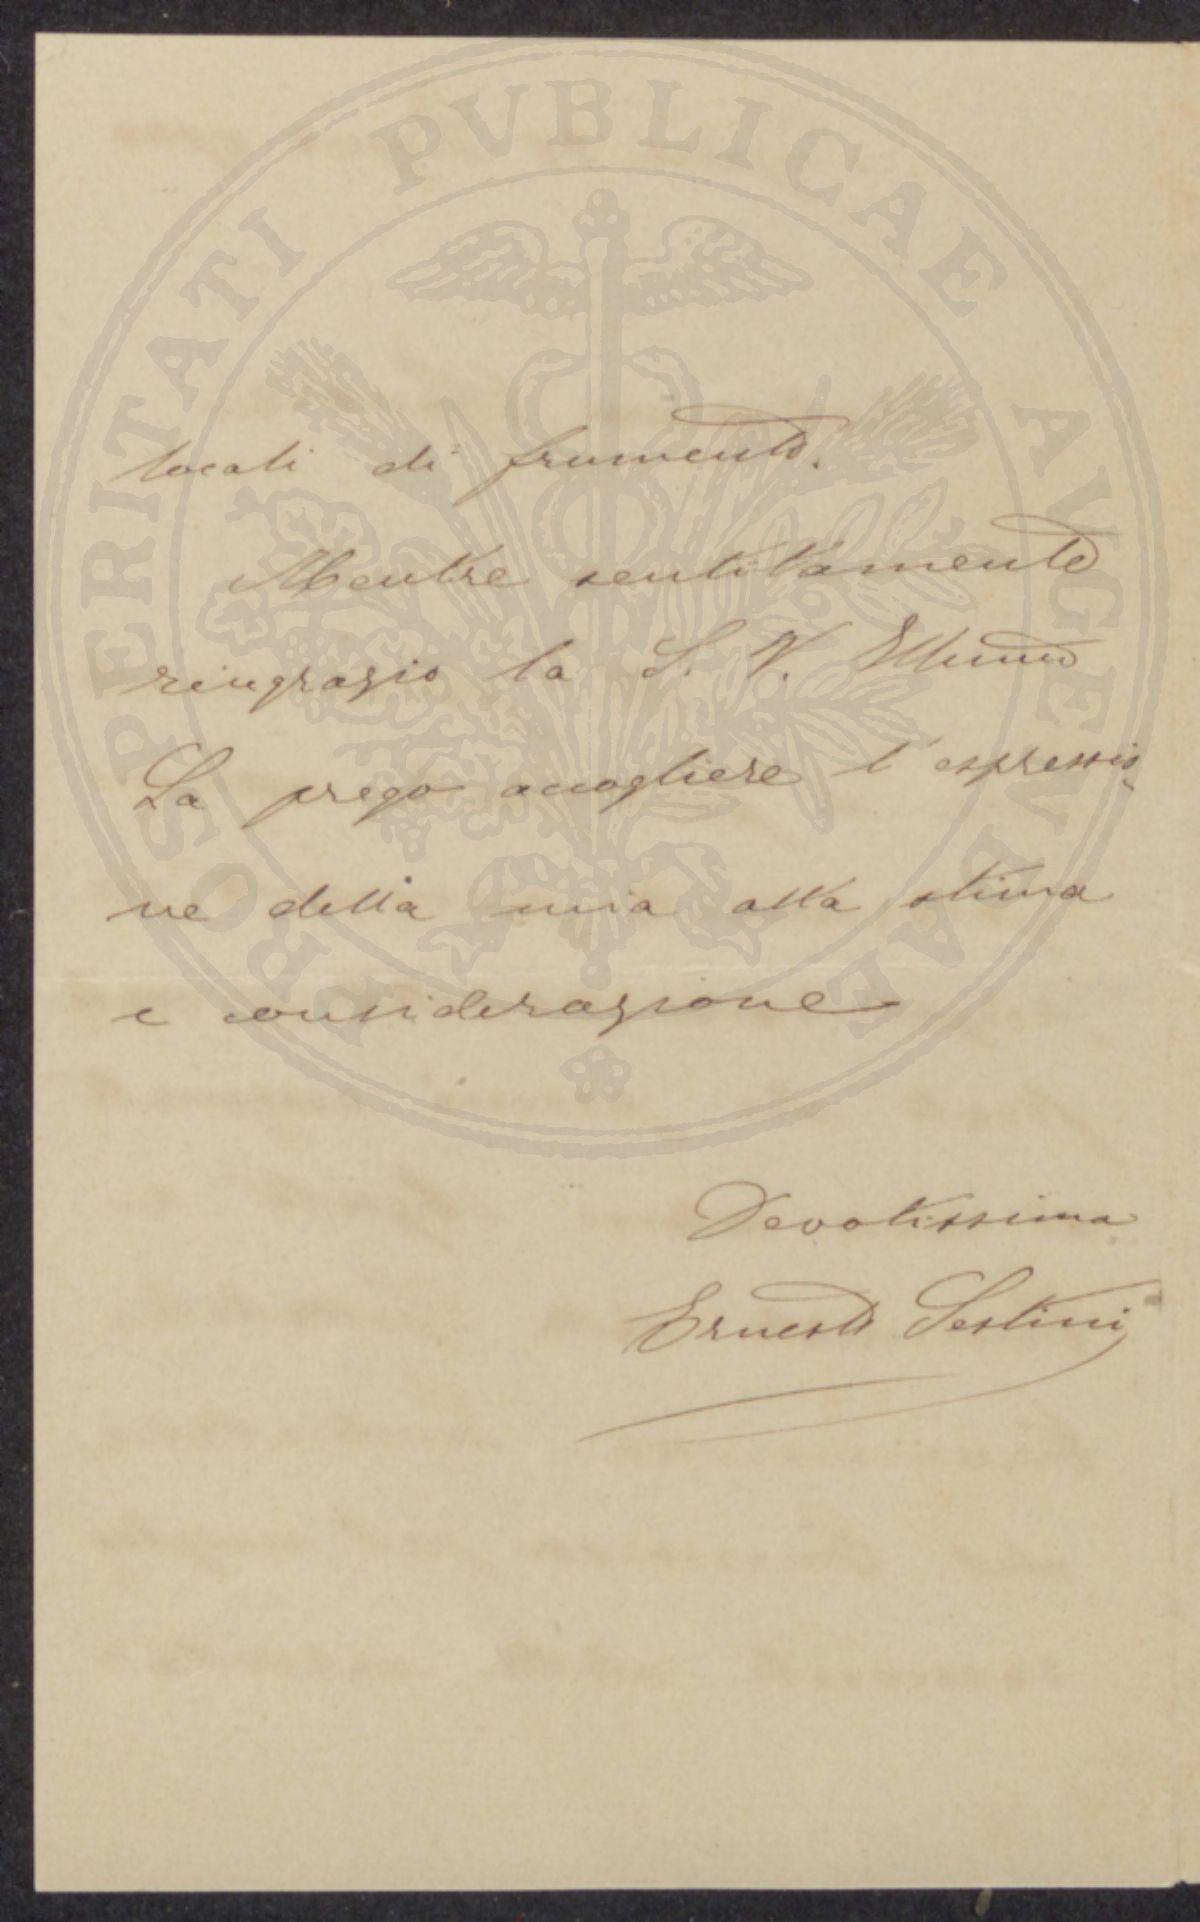 PROSPERITATI PVBLICAE AVGENDAE
locali di frumento.
Mentre sentitamente
ringrazio la S. V. Illuma
La prego accogliere l'espressio-
ne della mia alta stima
e considerazione
Devotissimo
Ernesto Sestini